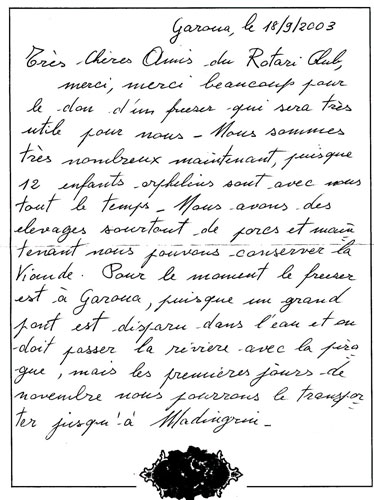 Garoua, le 18/9/2003
Très chères Amis du Rotari Club,
merci, merci beaucoup pour
le don d'un freser qui sera très
utile pour nous - Nous sommes
très nombreux maintenant, puisque
12 enfants orphelins sont avec nous
tout le temps - Nous avons des
elevages sourtout de porcs et main
tenant nous pouvons conserver la
Viande. Pour le moment le freuser
est à Garoua, puisque un grand
pont est disparu dans l'eau et on
doit passer la rivière avec la piro
gue, mais les premières jours de
novembre nous pourrons le transpor
ter jusqu'à Madingrin -